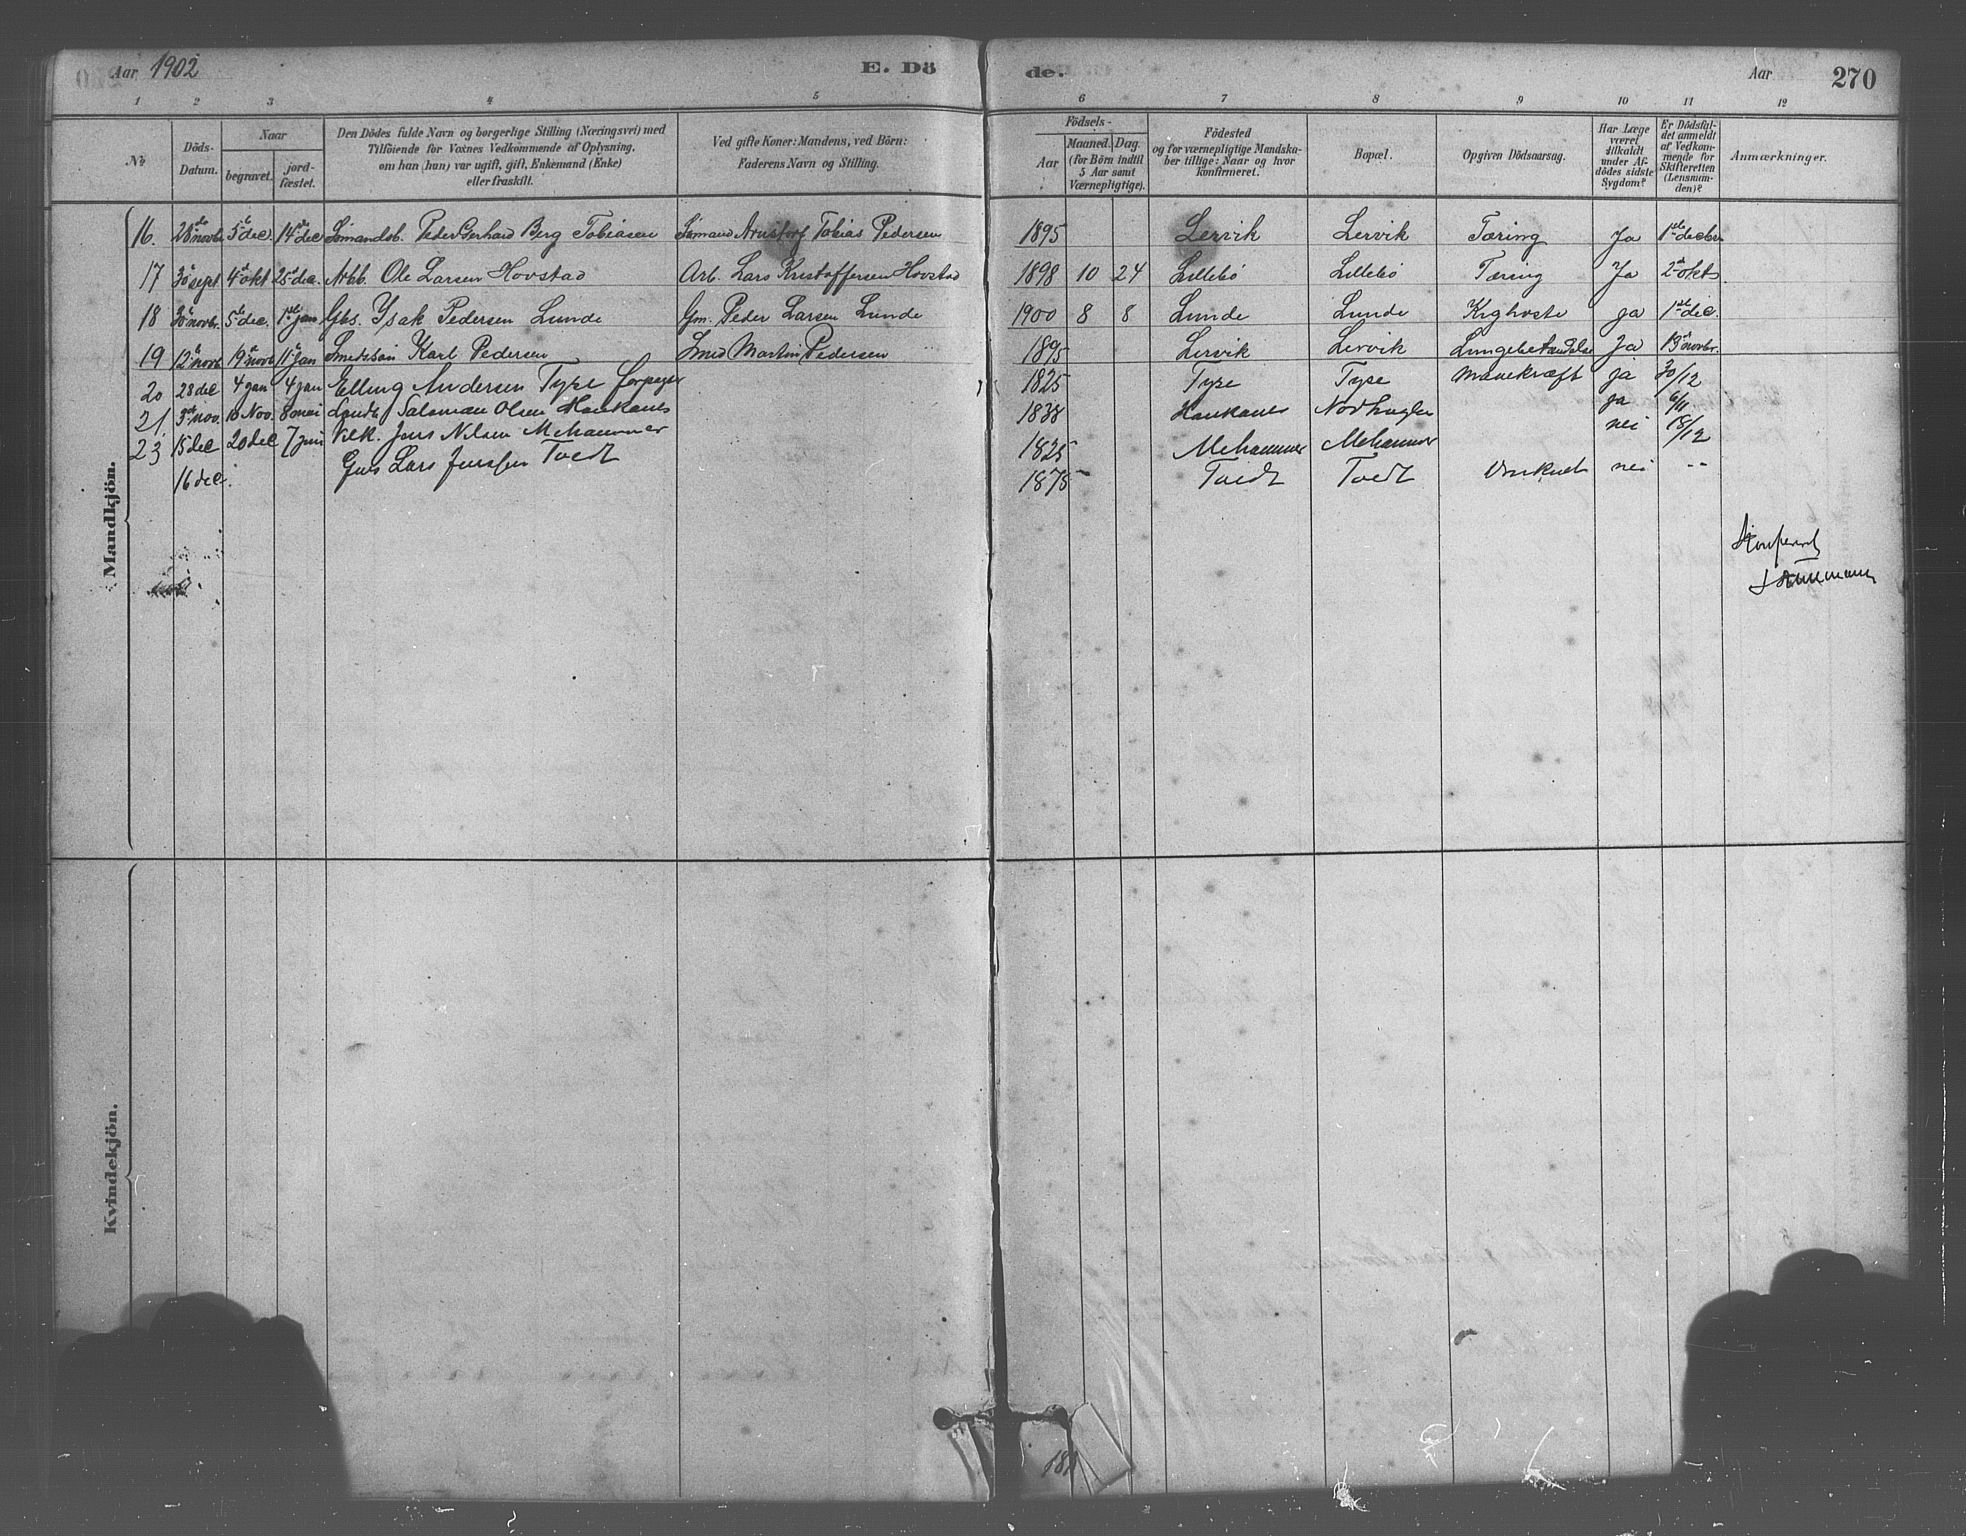 Aar 1902 E. Dö de. Aar 270
1 2 3 4 5 6 7 8 9 10 11 12
No
Döds-Datum.
Naar begravet. jordfæstet.
Den Dödes fulde Navn og borgerlige Stilling (Næringsvei) med Tilföiende for Voxnes Vedkommende af Oplysning, om han (hun) var ugift, gift, Enkemand (Enke) eller fraskilt.
Ved gifte Koner: Mandens, ved Börn: Faderens Navn og Stilling.
Födsels- Aar Maaned. Dag. (for Börn indtil 5 Aar samt Værnepligtige).
Födested og for værnepligtige Mandskaber tillige: Naar og hvor konfirmeret.
Bopæl.
Opgiven Dödsaarsag.
Har Læge været tilkaldt under Afdödes sidste Sygdom?
Er Dödsfaldet anmeldt af Vedkommende for Skifteretten (Lensmanden)?
Anmærkninger.
Mandkjön.
16. 28de novbr 5te dec. 14de dec Sömandsb. Peder Gerhard Berg Tobiasen Sömand Arnstorf Tobias Pedersen 1895 Lervik Lervik Tæring Ja 1ste decbr
17 30 sept 4de okt 25de dec. Arbb. Ole Larsen Hovstad Arb. Lars Kristoffersen Hovstad 1898 10 24 Lillebö Lillebö Tæring Ja 2 okt
18 30 novbr. 5te dec. 1ste jan Gbs. Ysak Pedersen Lunde Gm. Peder Larsen Lunde 1900 8 8 Lunde Lunde Kighoste ja 1ste dec.
19 12te novbr 19de novb 11te jan Smedssön Karl Pedersen Smed Martin Pedersen 1895 Lervik Lervik Lungebetændelse Ja 19de novbr.
20 28 dec 4 jan 4 jan Elling Andersen Tyse 1825 Tyse Tyse Mavekræft ja 30/12
21. 3 nov. 10 Nov. 8 mai Salamon Olsen Haukanes 1838 Haukanes Nordhuglen ja 6/11
23 15 dec 20 dec 7 juni Jens Nilsen Mehammer 1825 Mehammer Mehammer nei 18/12
16 dec. Lars Tvedt 1875 Tvedt Tvedt nei
Kvindekjön.